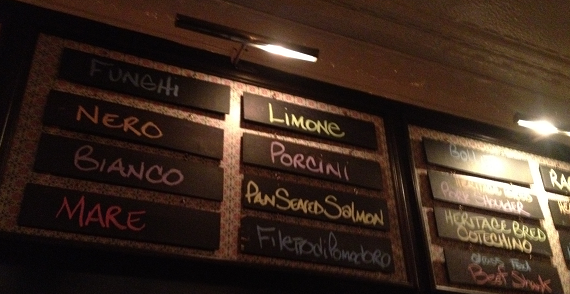 FUNGHI
NERO
BIANCO
MARE
LIMONE
PORCINI
PAN SEARED SALMON
FILETTO di POMODORO
HERITAGE BRED
COTECHINO
GRASS FED
BEEF SHANK